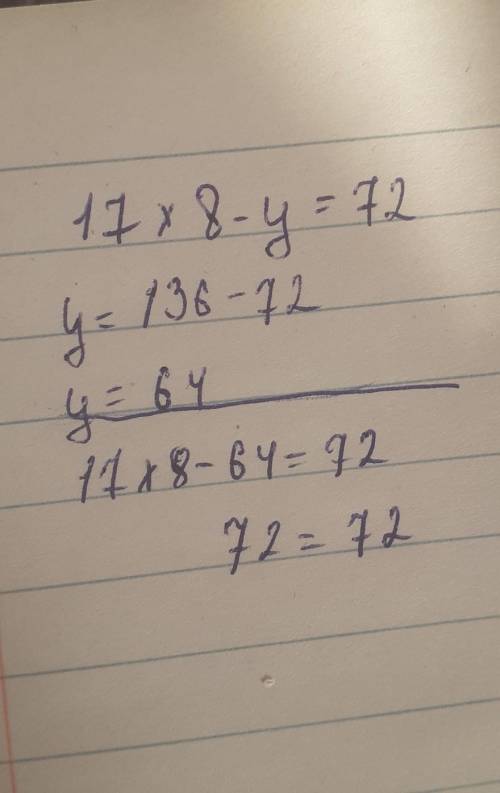 17 × 8 - y = 72
y = 136 - 72
y = 64
17 × 8 - 64 = 72
72 = 72